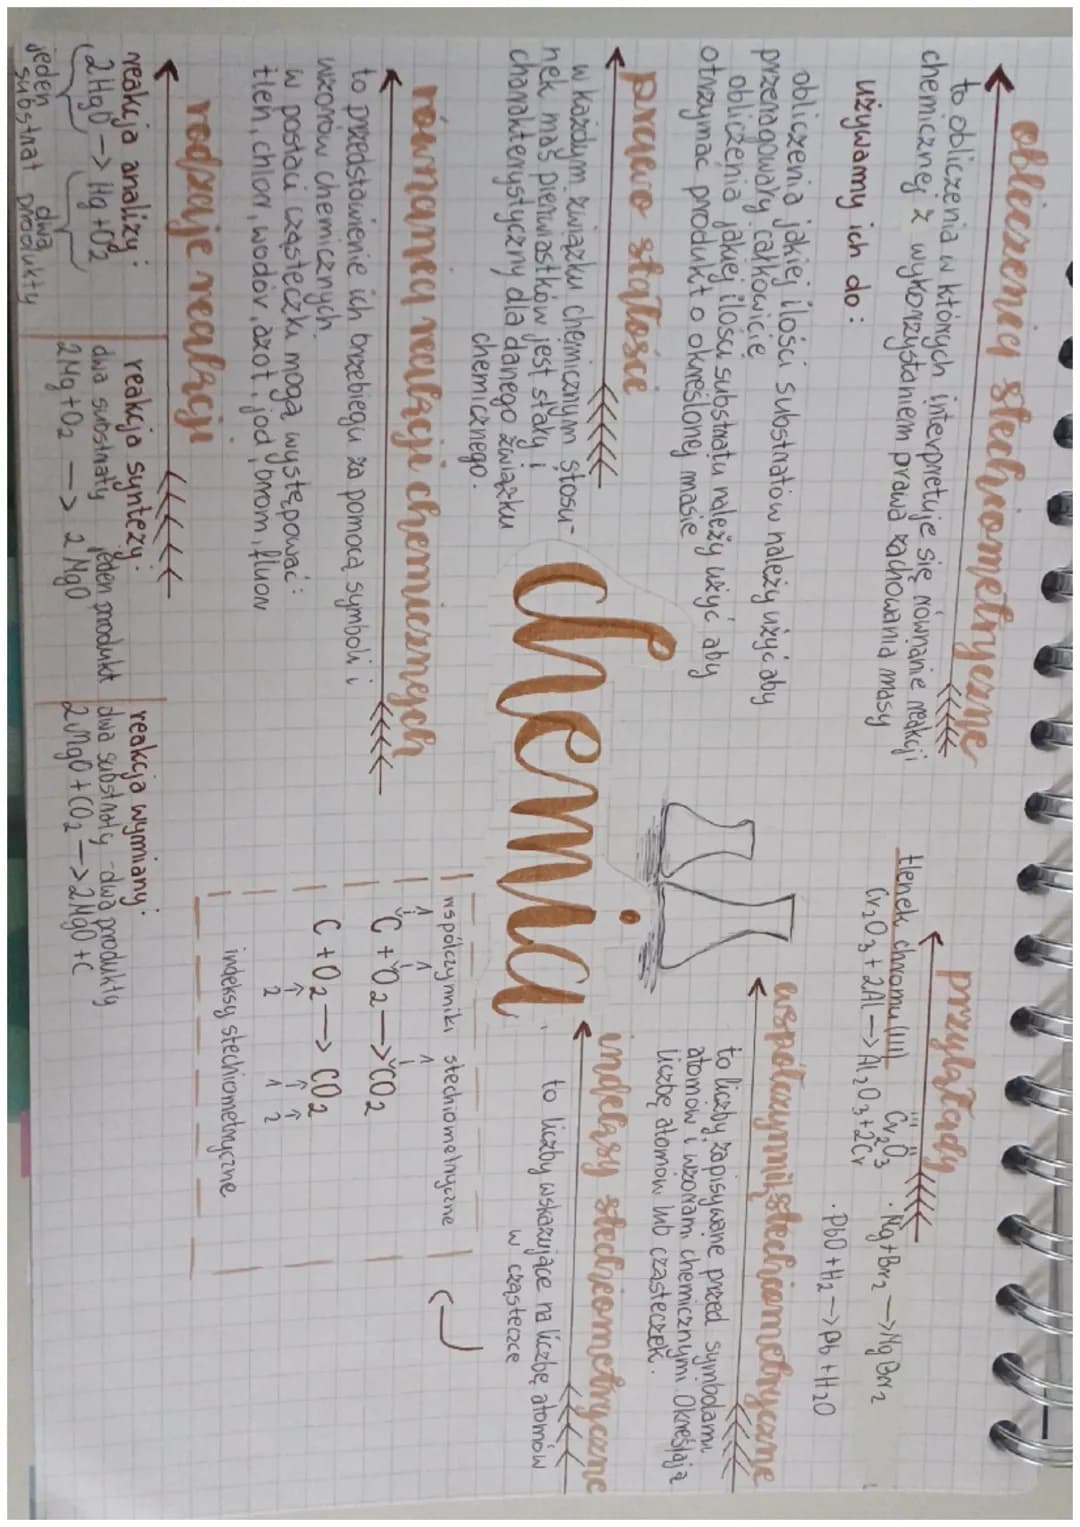 obliczenia stechiometryczne
to obliczenia w których interpretuje się równanie reakcji
chemicznej z wykorzystaniem prawa zachowania masy
używamy ich do:
obliczenia jakiej ilości substratów należy użyć aby
przereagowały całkowicie
obliczenia jakiej ilości substratu należy użyć aby
otrzymać produkt o określonej masie
prawo stałości
w każdym związku chemicznym stosu-
nek mas pierwiastków jest stały i
charakterystyczny dla danego związku
chemicznego.
równania reakcji chemicznych
to przedstawienie ich przebiegu za pomocą symboli i
wzorów chemicznych.
w postaci cząsteczki mogą występować:
tlen, chlor, wodór, azot, jod, brom, fluor
rodzaje reakcji
reakcja analizy:
2HgO -> Hg + O2
jeden substrat dwa produkty
reakcja syntezy:
dwa substraty jeden produkt
2Mg + O2 -> 2MgO
reakcja wymiany:
dwa substraty - dwa produkty
2MgO + CO2 -> 2MgO + C
chemia
przykłady
tlenek chromu (III) Cr2O3
Cr2O3 + 2Al -> Al2O3 + 2Cr
· Mg + Br2 -> MgBr2
· PbO + H2 -> Pb + H2O
współczynniki stechiometryczne
to liczby zapisywane przed symbolami
atomów i wzorami chemicznymi. Określają
liczbę atomów lub cząsteczek.
indeksy stechiometryczne
to liczby wskazujące na liczbę atomów
w cząsteczce
współczynniki stechiometryczne
1 1 1
C + O2 -> CO2
C + O2 -> CO2
2 1 2
indeksy stechiometryczne